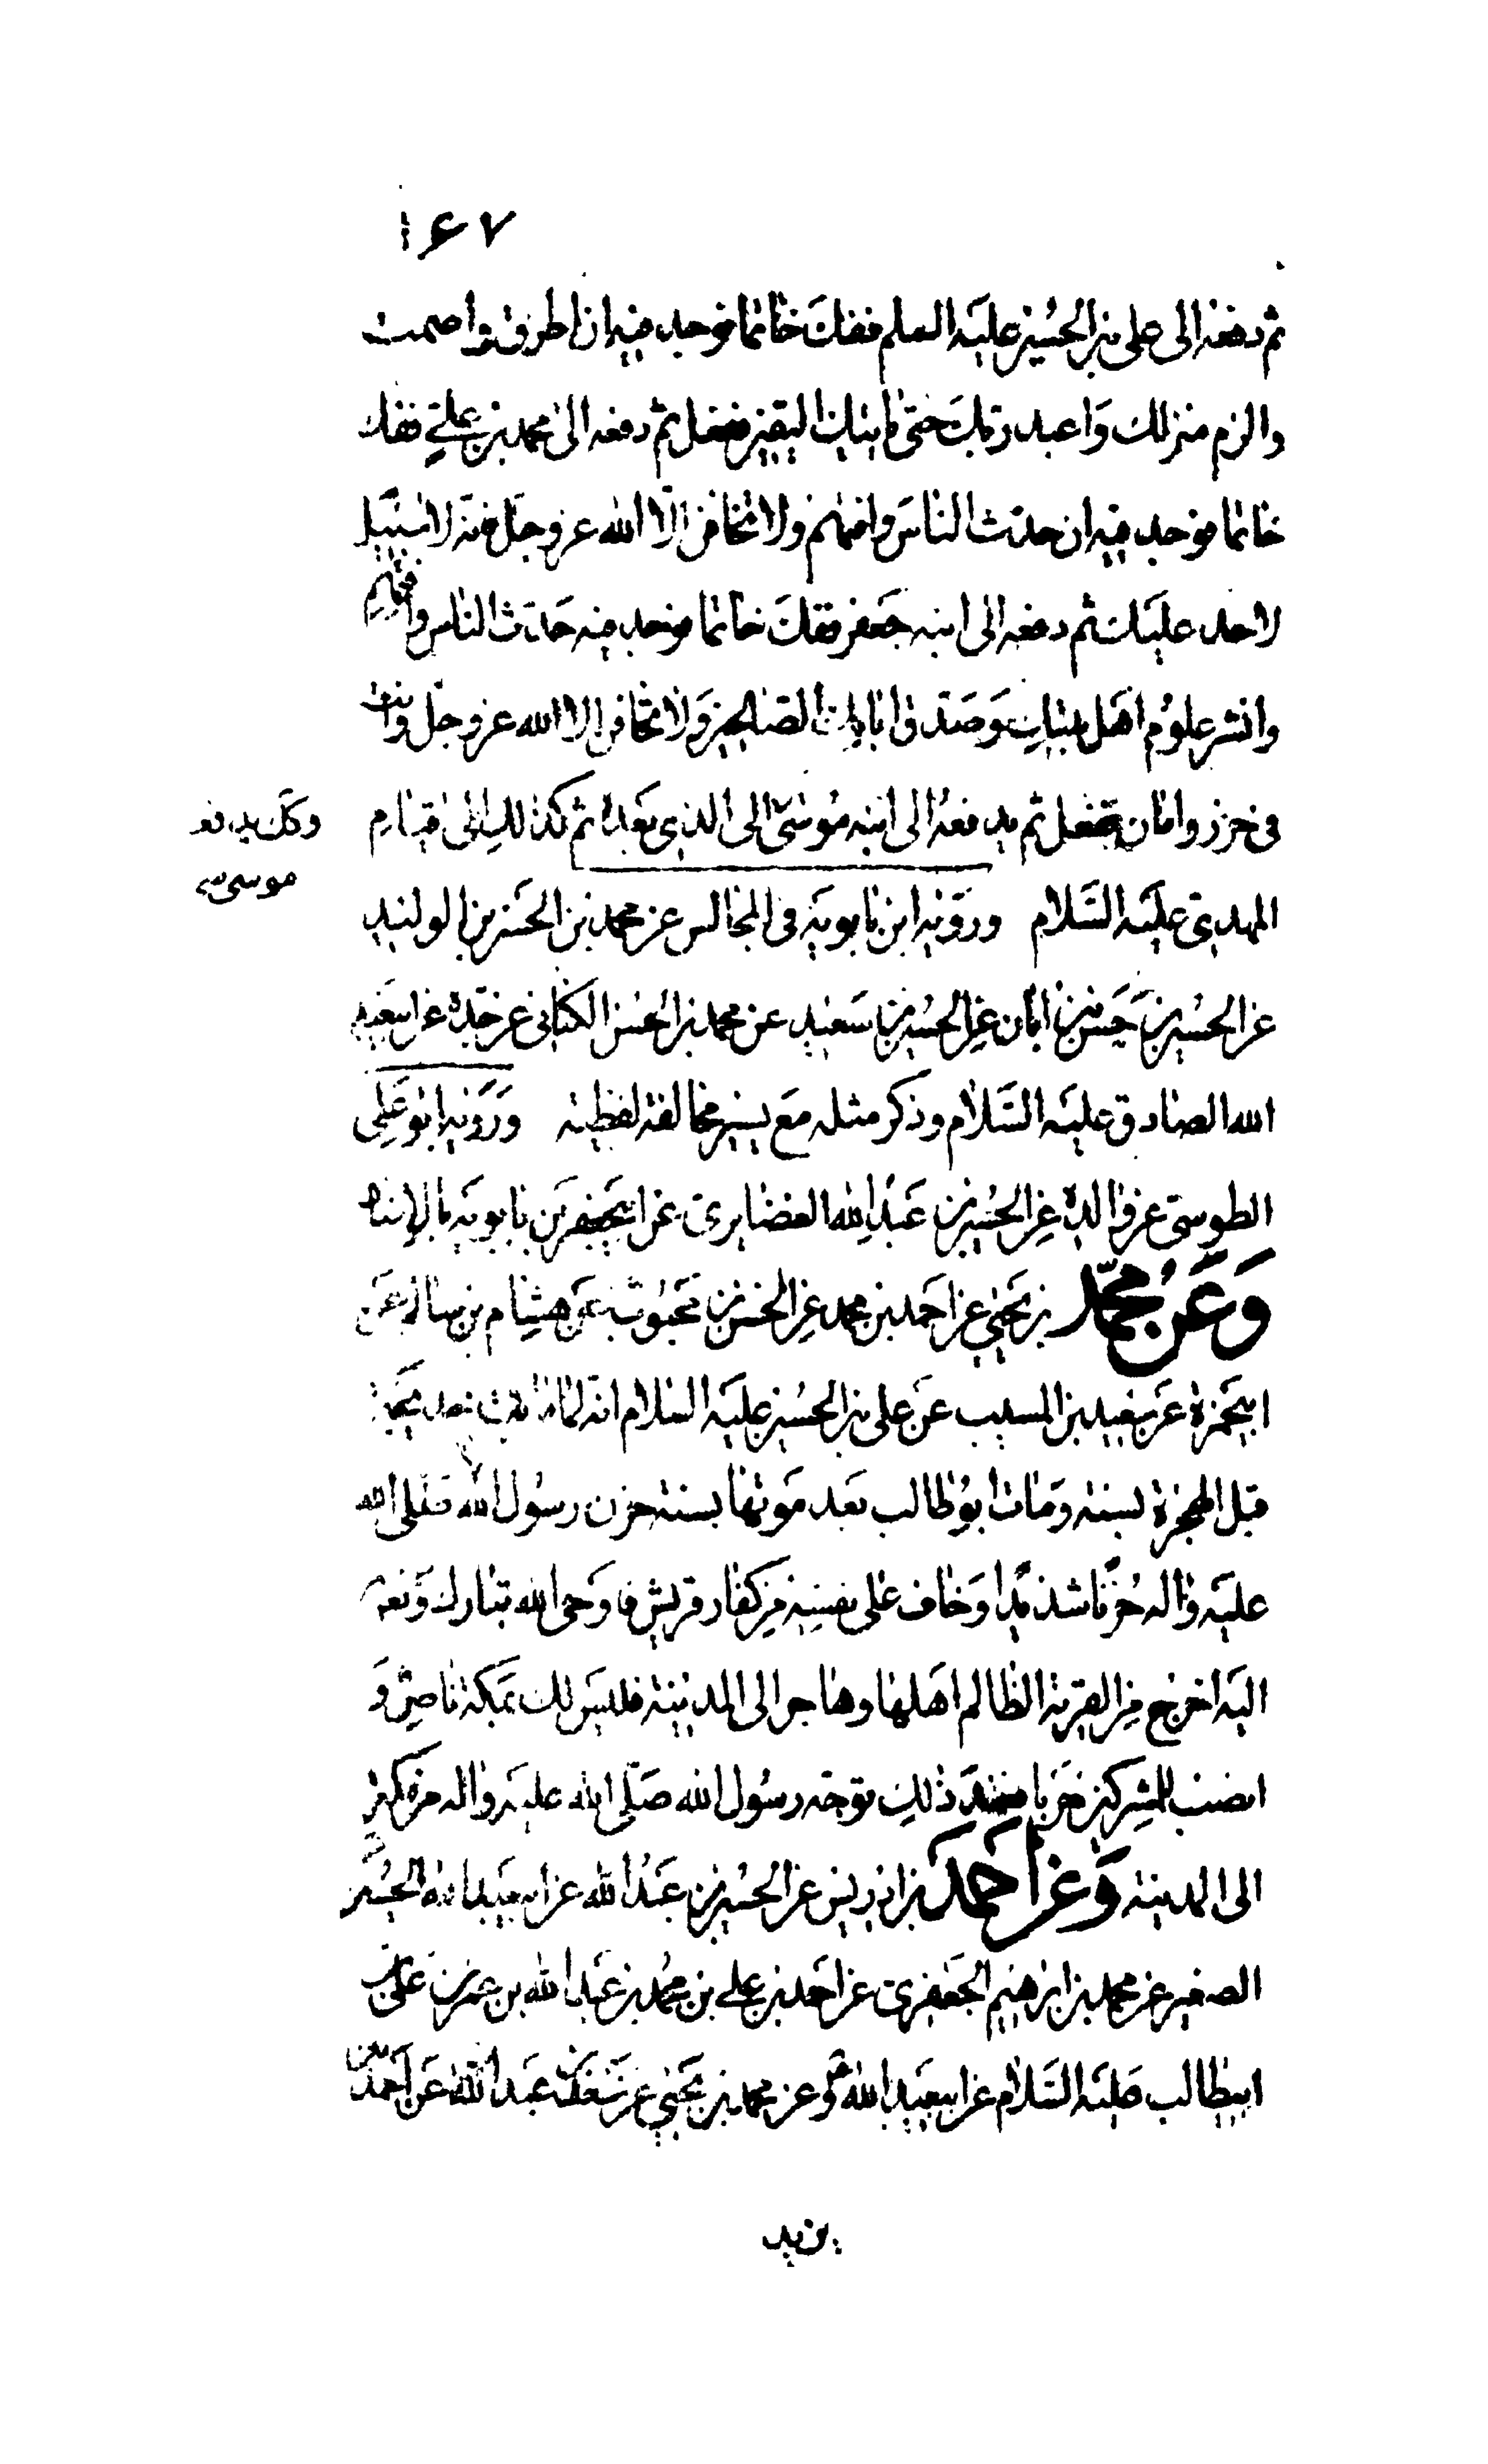 ١۶٧
ثم دفعه الى على بن الحسين عليه السلم ففك خاتما فوجد فيه ان اطرق واصمت
والزم منزلك وَاعبد ربّك حَتىٰ يأتيك اليقين ففعل ثم دفعه الىٰ محمد بن علىّ ففك
خاتما فوجد فيه ان حدّث الناسَ وافتهم ولا تخافن الّا الله عز وجلّ فانّه لا سبيل
لاحد عليَك ثم دفعه الى ابنه جَعفر ففكّ خاتما فوجد فيه حَدّث الناس وافتهم
وانشر علوُم اهَل بيتك وَصَدّق اباءك الصّالحين وَلا تخافن الا الله عز وجلّ وانت
فى حرز وامان ففعل ثم يدفعهُ الى ابنه مُوسٰى الى الذي بعَده ثم كذلك الى قيام
وكك يدفعه
موسى
المهدىّ عليَه السَّلام ورَوٰيه ابن بابويَه فى المجالس عن محمد بن الحَسَن بن الوليد
عن الحسُين بن حَسَن بن ابٰان عن الحسُين بن سَعيد عن محمد بن الحسُن الكنانى عن جَدّه عن ابيعَبد
الله الصادق عليَه السَّلٰام وذكر مثله مَع يسير مخالفة لفظية ورَوٰيه ابو عَلى
الطوسىّ عن والده عن الحسُين بن عَبدِ الله الغضايرىّ عن ابيجَعفر بن بابويَه بالاسناد
وَعَن مُحَمّد بن يحَيىٰ عن احمَد بن محمد عن الحسَن بن محَبُوب عَن هشِام بن سالم عَن
ابيحَمزة عَن سَعيد بن المسيب عَن على بن الحسُين عليَه السلام انه لما ماتت خديجَة
قبل الهجرة بسنة وَمات ابوُ طالب بعَد مَوتها بسنة حزن رسُول الله صَلى الله
عليَه وٰاله حُزنًا شديدًا وَخاف على نفسِه مِن كفار قريش فاوَحى الله تبارك وَتعه
اليَه اخرُج مِن القرية الظالم اهَلها وهٰاجر الى المدينة فليسَ لك بمَكة ناصرٌ وَ
انصب للمشركين حَربا فعند ذٰلك توجّه رسُول الله صَلّى الله عليَه وٰاله من مكة
الى المدينة وَعَن اَحمَد بن ادريس عن الحسُين بن عَبدُ الله عن ابيعَبد الله الحسُين
الصغير عن محمد بن ابرٰهيم الجَعفرىّ عن احمَد بن على بن محُمد بن عَبد الله بن عمر بن عَلى بن
ابيطالب عليَه السَّلٰام عن ابيعَبد الله ح وعن محمد بن يحَيى عن سَعَد بن عبَد الله عَن اَحمَد بن
يزيد